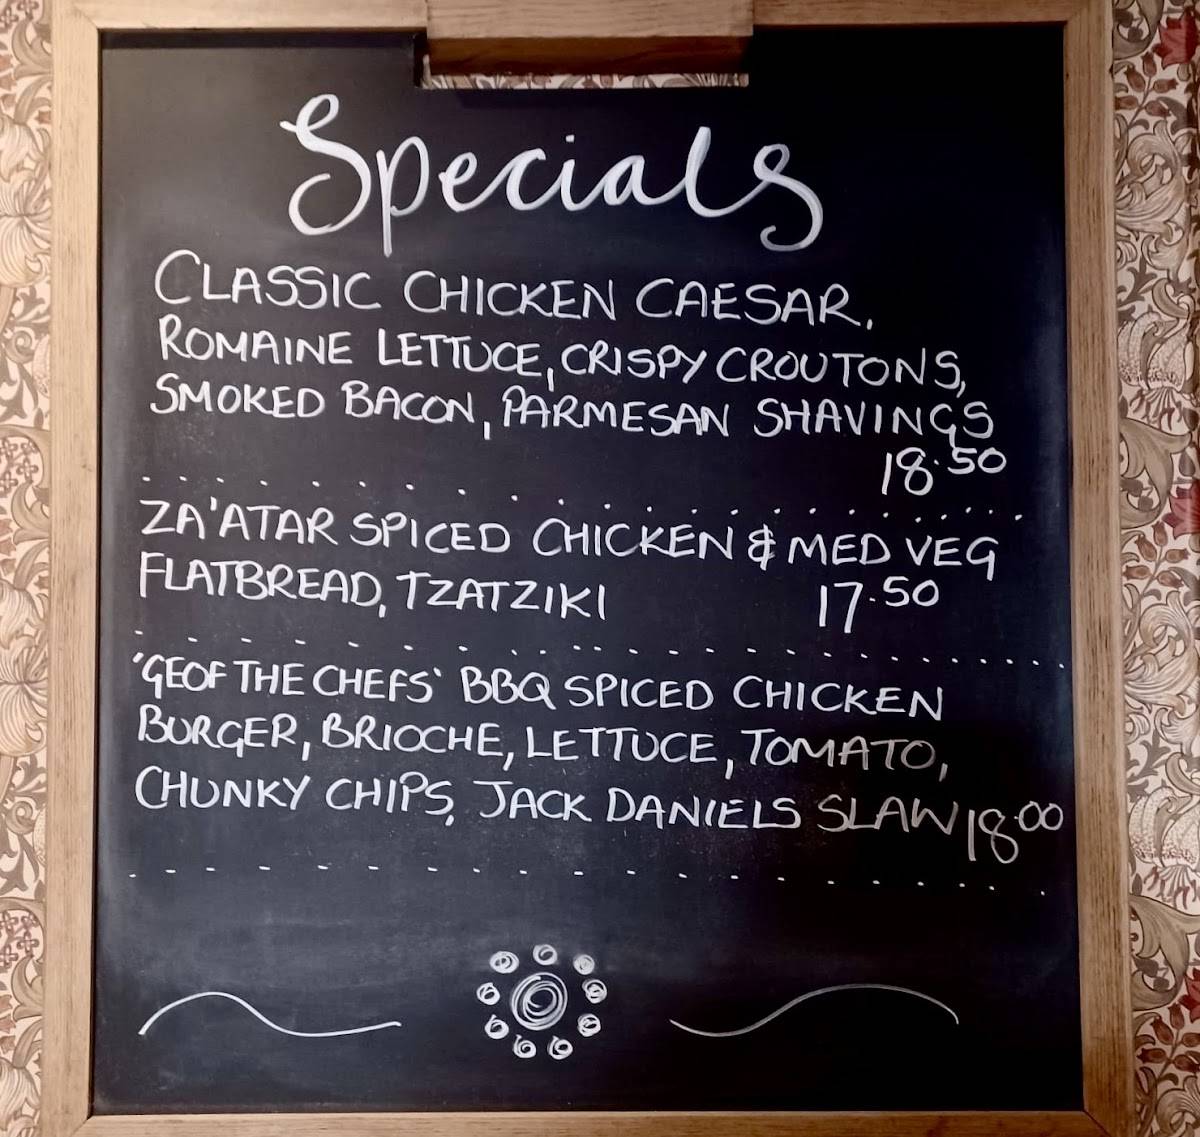 Specials
CLASSIC CHICKEN CAESAR.
ROMAINE LETTUCE, CRISPY CROUTONS,
SMOKED BACON, PARMESAN SHAVINGS
18.50
ZA'ATAR SPICED CHICKEN & MED VEG
FLATBREAD, TZATZIKI 17.50
'GEOF THE CHEFS' BBQ SPICED CHICKEN
BURGER, BRIOCHE, LETTUCE, TOMATO,
CHUNKY CHIPS, JACK DANIELS SLAW 18.00